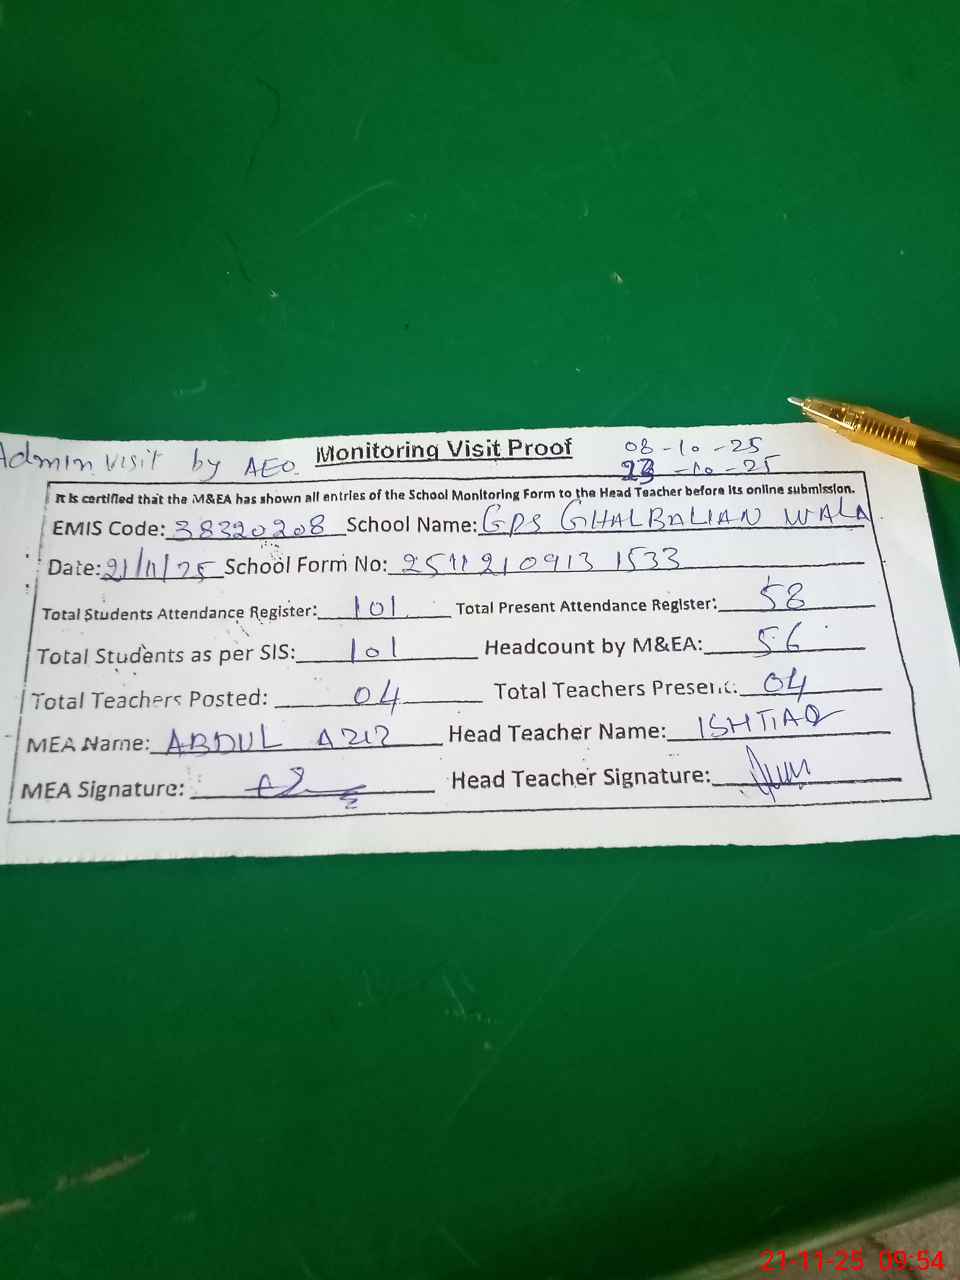 Admin visit by AEO. Monitoring Visit Proof 08-10-25
23-10-25
It is certified that the M&EA has shown all entries of the School Monitoring Form to the Head Teacher before its online submission.
EMIS Code: 38320208 School Name: GPS GHALBALIAN WALA
Date: 21/11/25 School Form No: 2511210913 1533
Total Students Attendance Register: 101 Total Present Attendance Register: 58
Total Students as per SIS: 101 Headcount by M&EA: 56
Total Teachers Posted: 04 Total Teachers Present: 04
MEA Name: ABDUL AZIZ Head Teacher Name: ISHTIAQ
MEA Signature: Head Teacher Signature:
21-11-25 09:54